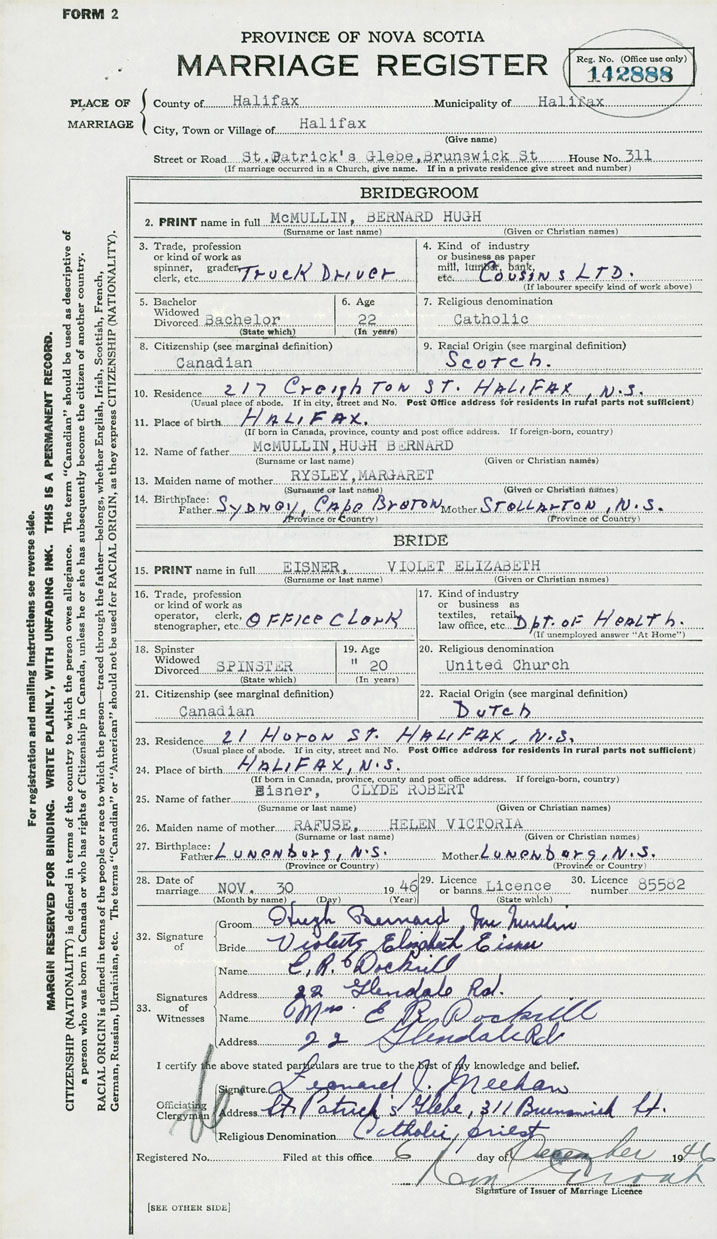 FORM 2
PROVINCE OF NOVA SCOTIA
MARRIAGE REGISTER
Reg. No. (Office use only)
142888
PLACE OF MARRIAGE
County of Halifax Municipality of Halifax
City, Town or Village of Halifax
(Give name)
Street or Road St.Patrick's Glebe,Brunswick St House No. 311
(If marriage occurred in a Church, give name. If in a private residence give street and number)
BRIDEGROOM
2. PRINT name in full McMULLIN, BERNARD HUGH
(Surname or last name) (Given or Christian names)
3. Trade, profession or kind of work as spinner, grader, clerk, etc. TRUCK DRIVER
4. Kind of industry or business as paper mill, lumber, bank, etc. COUSINS LTD.
(If labourer specify kind of work above)
5. Bachelor Widowed Divorced Bachelor
(State which)
6. Age 22
(In years)
7. Religious denomination
Catholic
8. Citizenship (see marginal definition)
Canadian
9. Racial Origin (see marginal definition)
Scotch.
10. Residence 217 Creighton ST. HALIFAX, N.S.
(Usual place of abode. If in city, street and No. Post Office address for residents in rural parts not sufficient)
11. Place of birth HALIFAX.
(If born in Canada, province, county and post office address. If foreign-born, country)
12. Name of father McMULLIN,HUGH BERNARD
(Surname or last name) (Given or Christian names)
13. Maiden name of mother RYSLEY,MARGARET
(Surname or last name) (Given or Christian names)
14. Birthplace: Father SYDNEY, CAPE BRETON Mother STELLARTON, N.S.
(Province or Country) (Province or Country)
BRIDE
15. PRINT name in full EISNER, VIOLET ELIZABETH
(Surname or last name) (Given or Christian names)
16. Trade, profession or kind of work as operator, clerk, stenographer, etc. OFFICE CLERK
17. Kind of industry or business as textiles, retail, law office, etc. Dpt. of HEALTH.
(If unemployed answer "At Home")
18. Spinster Widowed Divorced SPINSTER
(State which)
19. Age " 20
(In years)
20. Religious denomination
United Church
21. Citizenship (see marginal definition)
Canadian
22. Racial Origin (see marginal definition)
Dutch
23. Residence 21 Huron ST. HALIFAX, N.S.
(Usual place of abode. If in city, street and No. Post Office address for residents in rural parts not sufficient)
24. Place of birth HALIFAX, N.S.
(If born in Canada, province, county and post office address. If foreign-born, country)
25. Name of father Eisner, CLYDE ROBERT
(Surname or last name) (Given or Christian names)
26. Maiden name of mother RAFUSE, HELEN VICTORIA
(Surname or last name) (Given or Christian names)
27. Birthplace: Father LUNENBURG, N.S. Mother LUNENBURG, N.S.
(Province or Country) (Province or Country)
28. Date of marriage NOV. 30 1946
(Month by name) (Day) (Year)
29. Licence or banns Licence
(State which)
30. Licence number 85582
32. Signature of
Groom Hugh Bernard McMullin
Bride Violet Elizabeth Eisner
33. Signatures of Witnesses
Name E. R. Dockrill
Address 22 Glendale Rd.
Name Mrs. E R Dockrill
Address 22 Glendale Rd
I certify the above stated particulars are true to the best of my knowledge and belief.
Officiating Clergyman
Signature Leonard J. Meehan
Address St Patrick's Glebe, 311 Brunswick St.
Religious Denomination Catholic priest
Registered No. Filed at this office 6 day of December 1946
Signature of Issuer of Marriage Licence
[SEE OTHER SIDE]
For registration and mailing instructions see reverse side.
MARGIN RESERVED FOR BINDING. WRITE PLAINLY, WITH UNFADING INK. THIS IS A PERMANENT RECORD.
CITIZENSHIP (NATIONALITY) is defined in terms of the country to which the person owes allegiance. The term "Canadian" should be used as descriptive of
a person who was born in Canada or who has rights of Citizenship in Canada, unless he or she has subsequently become the citizen of another country.
RACIAL ORIGIN is defined in terms of the people or race to which the person—traced through the father—belongs, whether English, Irish, Scottish, French,
German, Russian, Ukrainian, etc. The terms "Canadian" or "American" should not be used for RACIAL ORIGIN, as they express CITIZENSHIP (NATIONALITY).